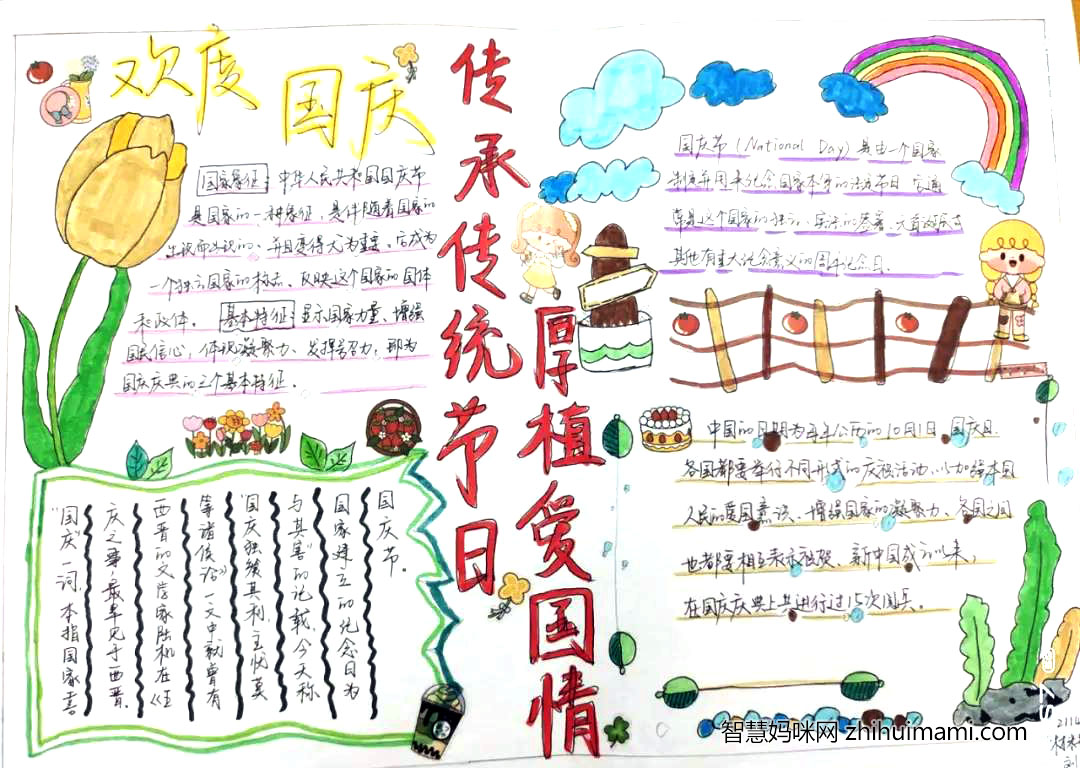 欢度
国庆
传承传统节日
厚植爱国情
国家象征：中华人民共和国国庆节
是国家的一种象征，是伴随着国家的
出现而出现的，并且变得尤为重要。它成为
一个独立国家的标志，反映这个国家的国体
和政体。基本特征：显示国家力量、增强
国民信心，体现凝聚力，发挥号召力，即为
国庆庆典的三个基本特征。
国庆节（National Day）是由一个国家
制定并用来纪念国家本身的法定节日。它通
常是这个国家的独立、宪法的签署、元首诞辰或
其他有重大纪念意义的周年纪念日。
中国的日期为每年公历的10月1日，国庆日
各国都要举行不同形式的庆祝活动，以加强本国
人民的爱国意识，增强国家的凝聚力。各国之间
也都要相互表示祝贺。新中国成立以来，
在国庆庆典上共进行过15次阅兵。
“国庆”一词，本指国家喜
庆之事，最早见于西晋。
西晋的文学家陆机在《五
等诸侯论》一文中就曾有
“国庆独飨其利，主忧莫
与其害”的记载，今天称
国家建立的纪念日为
国庆节。
2114
智慧妈咪网 zhihuimami.com